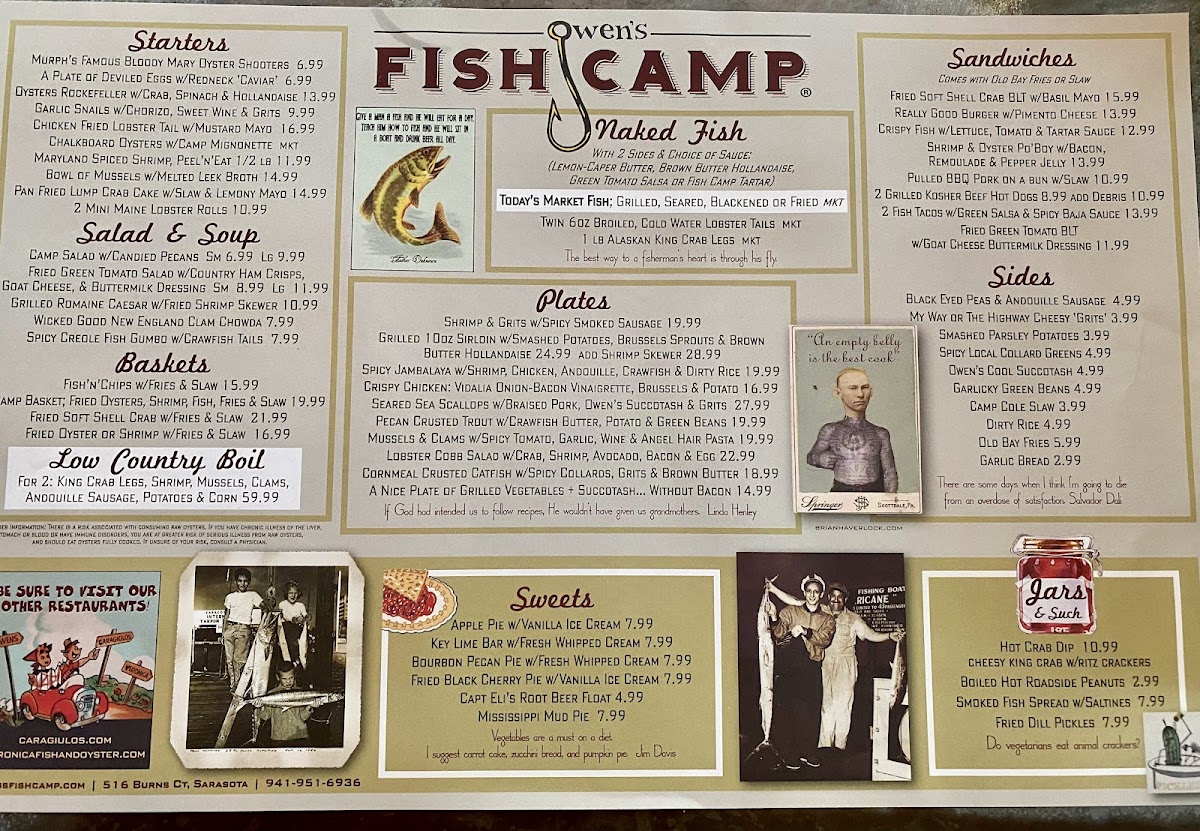 Owen's
FISH CAMP®
Starters
Murph's Famous Bloody Mary Oyster Shooters 6.99
A Plate of Deviled Eggs w/Redneck 'Caviar' 6.99
Oysters Rockefeller w/Crab, Spinach & Hollandaise 13.99
Garlic Snails w/Chorizo, Sweet Wine & Grits 9.99
Chicken Fried Lobster Tail w/Mustard Mayo 16.99
Chalkboard Oysters w/Camp Mignonette mkt
Maryland Spiced Shrimp, Peel'n'Eat 1/2 lb 11.99
Bowl of Mussels w/Melted Leek Broth 14.99
Pan Fried Lump Crab Cake w/Slaw & Lemony Mayo 14.99
2 Mini Maine Lobster Rolls 10.99
Salad & Soup
Camp Salad w/Candied Pecans Sm 6.99 Lg 9.99
Fried Green Tomato Salad w/Country Ham Crisps,
Goat Cheese, & Buttermilk Dressing Sm 8.99 Lg 11.99
Grilled Romaine Caesar w/Fried Shrimp Skewer 10.99
Wicked Good New England Clam Chowda 7.99
Spicy Creole Fish Gumbo w/Crawfish Tails 7.99
Baskets
Fish'n'Chips w/Fries & Slaw 15.99
amp Basket; Fried Oysters, Shrimp, Fish, Fries & Slaw 19.99
Fried Soft Shell Crab w/Fries & Slaw 21.99
Fried Oyster or Shrimp w/Fries & Slaw 16.99
Low Country Boil
For 2: King Crab Legs, Shrimp, Mussels, Clams,
Andouille Sausage, Potatoes & Corn 59.99
er Information: There is a risk associated with consuming raw oysters. If you have chronic illness of the liver,
tomach or blood or have immune disorders, you are at greater risk of serious illness from raw oysters,
and should eat oysters fully cooked. If unsure of your risk, consult a physician.
Give a man a fish and he will eat for a day.
Teach him how to fish and he will sit in
a boat and drink beer all day.
Naked Fish
With 2 Sides & Choice of Sauce:
(Lemon-Caper Butter, Brown Butter Hollandaise,
Green Tomato Salsa or Fish Camp Tartar)
Today's Market Fish; Grilled, Seared, Blackened or Fried mkt
Twin 6oz Broiled, Cold Water Lobster Tails mkt
1 lb Alaskan King Crab Legs mkt
The best way to a fisherman's heart is through his fly.
Plates
Shrimp & Grits w/Spicy Smoked Sausage 19.99
Grilled 10oz Sirloin w/Smashed Potatoes, Brussels Sprouts & Brown
Butter Hollandaise 24.99 add Shrimp Skewer 28.99
Spicy Jambalaya w/Shrimp, Chicken, Andouille, Crawfish & Dirty Rice 19.99
Crispy Chicken: Vidalia Onion-Bacon Vinaigrette, Brussels & Potato 16.99
Seared Sea Scallops w/Braised Pork, Owen's Succotash & Grits 27.99
Pecan Crusted Trout w/Crawfish Butter, Potato & Green Beans 19.99
Mussels & Clams w/Spicy Tomato, Garlic, Wine & Angel Hair Pasta 19.99
Lobster Cobb Salad w/Crab, Shrimp, Avocado, Bacon & Egg 22.99
Cornmeal Crusted Catfish w/Spicy Collards, Grits & Brown Butter 18.99
A Nice Plate of Grilled Vegetables + Succotash... Without Bacon 14.99
If God had intended us to follow recipes, He wouldn't have given us grandmothers. Linda Henley
"An empty belly
is the best cook"
Springer
Scottdale, Pa.
BRIANHAVERLOCK.COM
Sandwiches
Comes with Old Bay Fries or Slaw
Fried Soft Shell Crab BLT w/Basil Mayo 15.99
Really Good Burger w/Pimento Cheese 13.99
Crispy Fish w/Lettuce, Tomato & Tartar Sauce 12.99
Shrimp & Oyster Po'Boy w/Bacon,
Remoulade & Pepper Jelly 13.99
Pulled BBQ Pork on a bun w/Slaw 10.99
2 Grilled Kosher Beef Hot Dogs 8.99 add Debris 10.99
2 Fish Tacos w/Green Salsa & Spicy Baja Sauce 13.99
Fried Green Tomato BLT
w/Goat Cheese Buttermilk Dressing 11.99
Sides
Black Eyed Peas & Andouille Sausage 4.99
My Way or The Highway Cheesy 'Grits' 3.99
Smashed Parsley Potatoes 3.99
Spicy Local Collard Greens 4.99
Owen's Cool Succotash 4.99
Garlicky Green Beans 4.99
Camp Cole Slaw 3.99
Dirty Rice 4.99
Old Bay Fries 5.99
Garlic Bread 2.99
There are some days when I think I'm going to die
from an overdose of satisfaction. Salvador Dali
BE SURE TO VISIT OUR
OTHER RESTAURANTS!
OWENS
CARAGIULOS
VERONICA
CARAGIULOS.COM
RONICAFISHANDOYSTER.COM
SFISHCAMP.COM | 516 BURNS CT, SARASOTA | 941-951-6936
Sweets
Apple Pie w/Vanilla Ice Cream 7.99
Key Lime Bar w/Fresh Whipped Cream 7.99
Bourbon Pecan Pie w/Fresh Whipped Cream 7.99
Fried Black Cherry Pie w/Vanilla Ice Cream 7.99
Capt Eli's Root Beer Float 4.99
Mississippi Mud Pie 7.99
Vegetables are a must on a diet.
I suggest carrot cake, zucchini bread, and pumpkin pie. Jim Davis
FISHING BOAT
RICANE"
Jars
& Such
Hot Crab Dip 10.99
cheesy king crab w/ritz crackers
Boiled Hot Roadside Peanuts 2.99
Smoked Fish Spread w/Saltines 7.99
Fried Dill Pickles 7.99
Do vegetarians eat animal crackers?